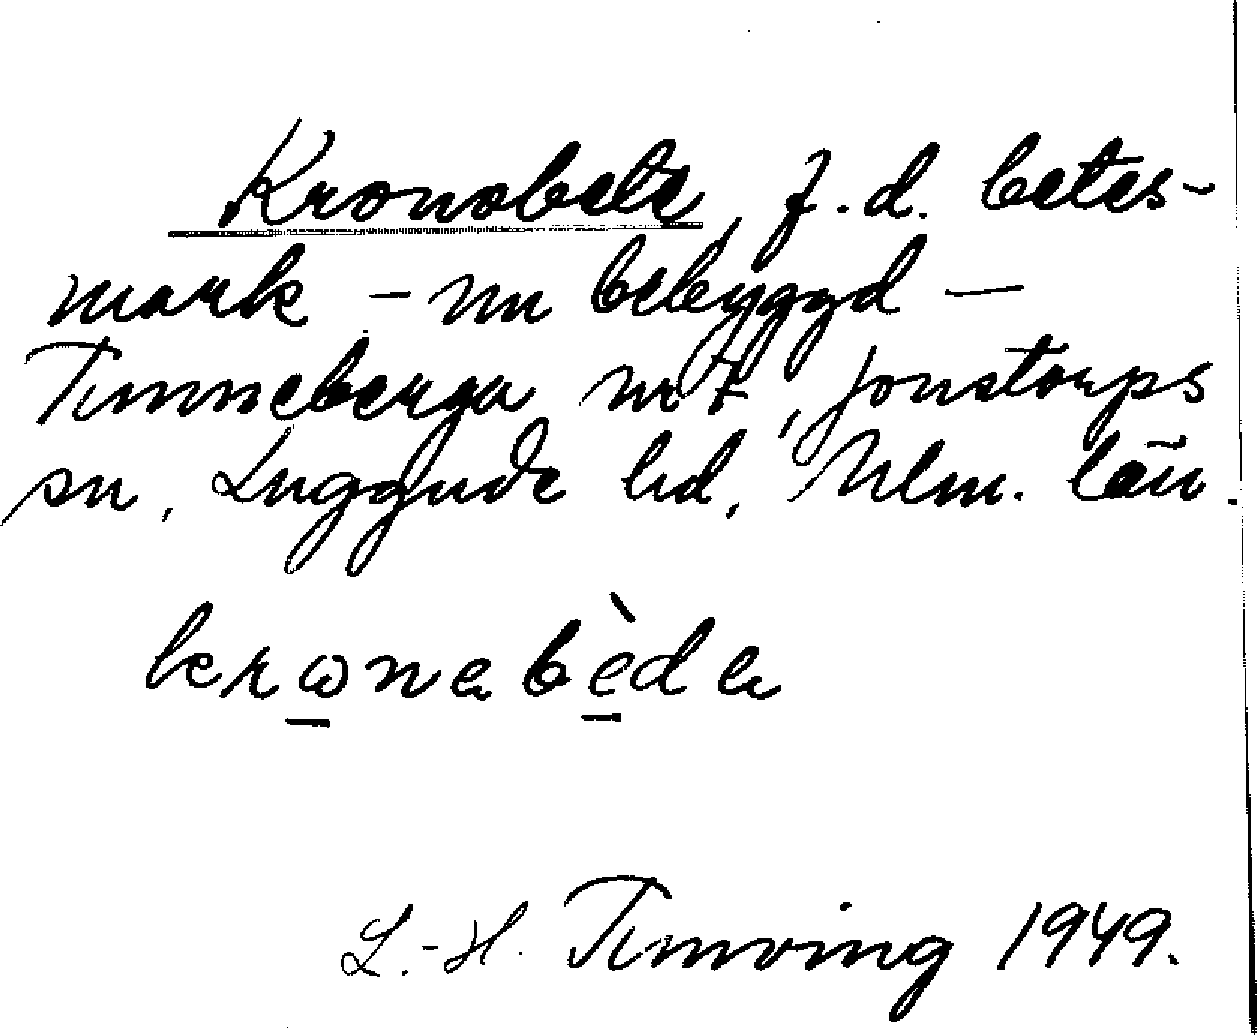 Kronobete, f.d. betes-
mark – nu bebyggd –
Tunneberga nr 7, Jonstorps
sn, Luggude hd, Mlm. län.
krωnabèda
L.-H. Tunving 1949.